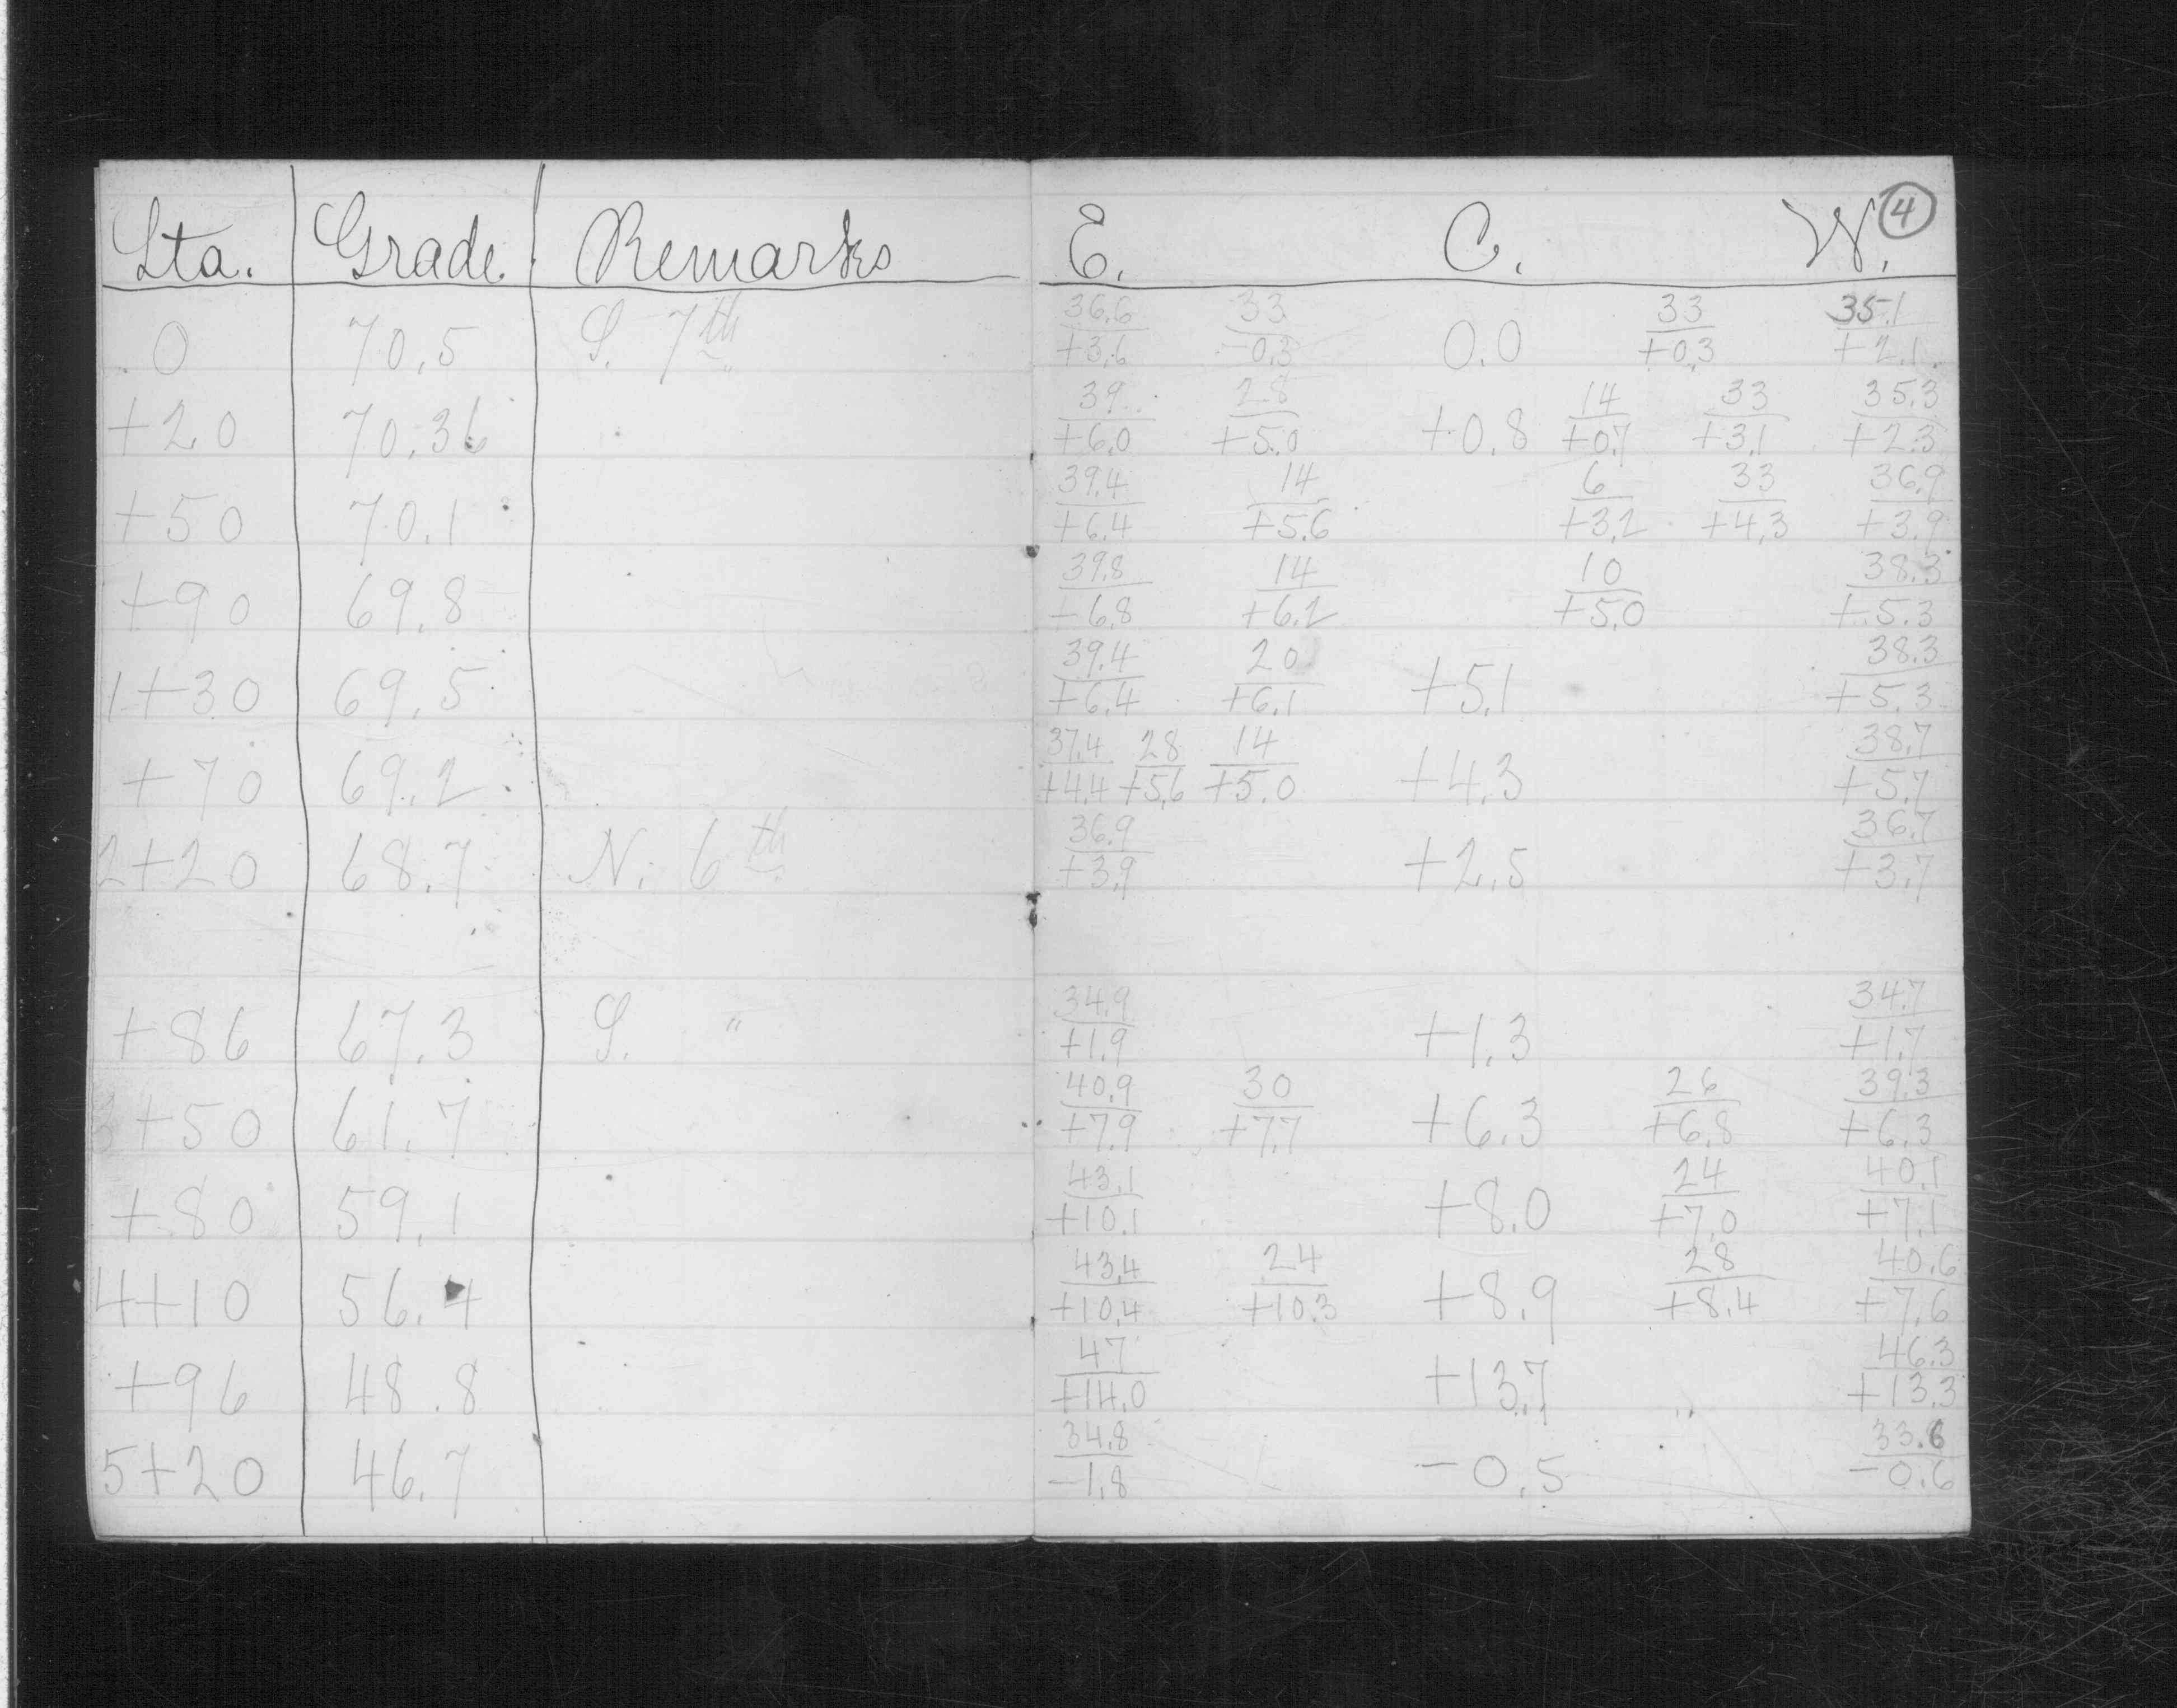 Sta. Grade. Remarks E. C. W. 4
36.6 33 33 35.1
0 70.5 S. 7th 0.0
+3.6 -0.3 +0.3 +2.1
39. 28 14 33 35.3
+20 70.36 +0.8
+6.0 +5.0 +0.7 +3.1 +2.3
39.4 14 6 33 36.9
+50 70.1
+6.4 +5.6 +3.2 +4.3 +3.9
39.8 14 10 38.3
+90 69.8
+6.8 +6.2 +5.0 +5.3
39.4 20 38.3
1+30 69.5 +5.1
+6.4 +6.1 +5.3
37.4 28 14 38.7
+70 69.2 +4.3
+4.4 +5.6 +5.0 +5.7
36.9 36.7
2+20 68.7 N. 6th +2.5
+3.9 +3.7
34.9 34.7
+86 67.3 S. " +1.3
+1.9 +1.7
40.9 30 26 39.3
3+50 61.7 +6.3
+7.9 +7.7 +6.8 +6.3
43.1 24 40.1
+80 59.1 +8.0
+10.1 +7.0 +7.1
43.4 24 28 40.6
4+10 56.4 +8.9
+10.4 +10.3 +8.4 +7.6
47 46.3
+96 48.8 +13.7
+14.0 +13.3
34.8 33.6
5+20 46.7 -0.5
-1.8 -0.6